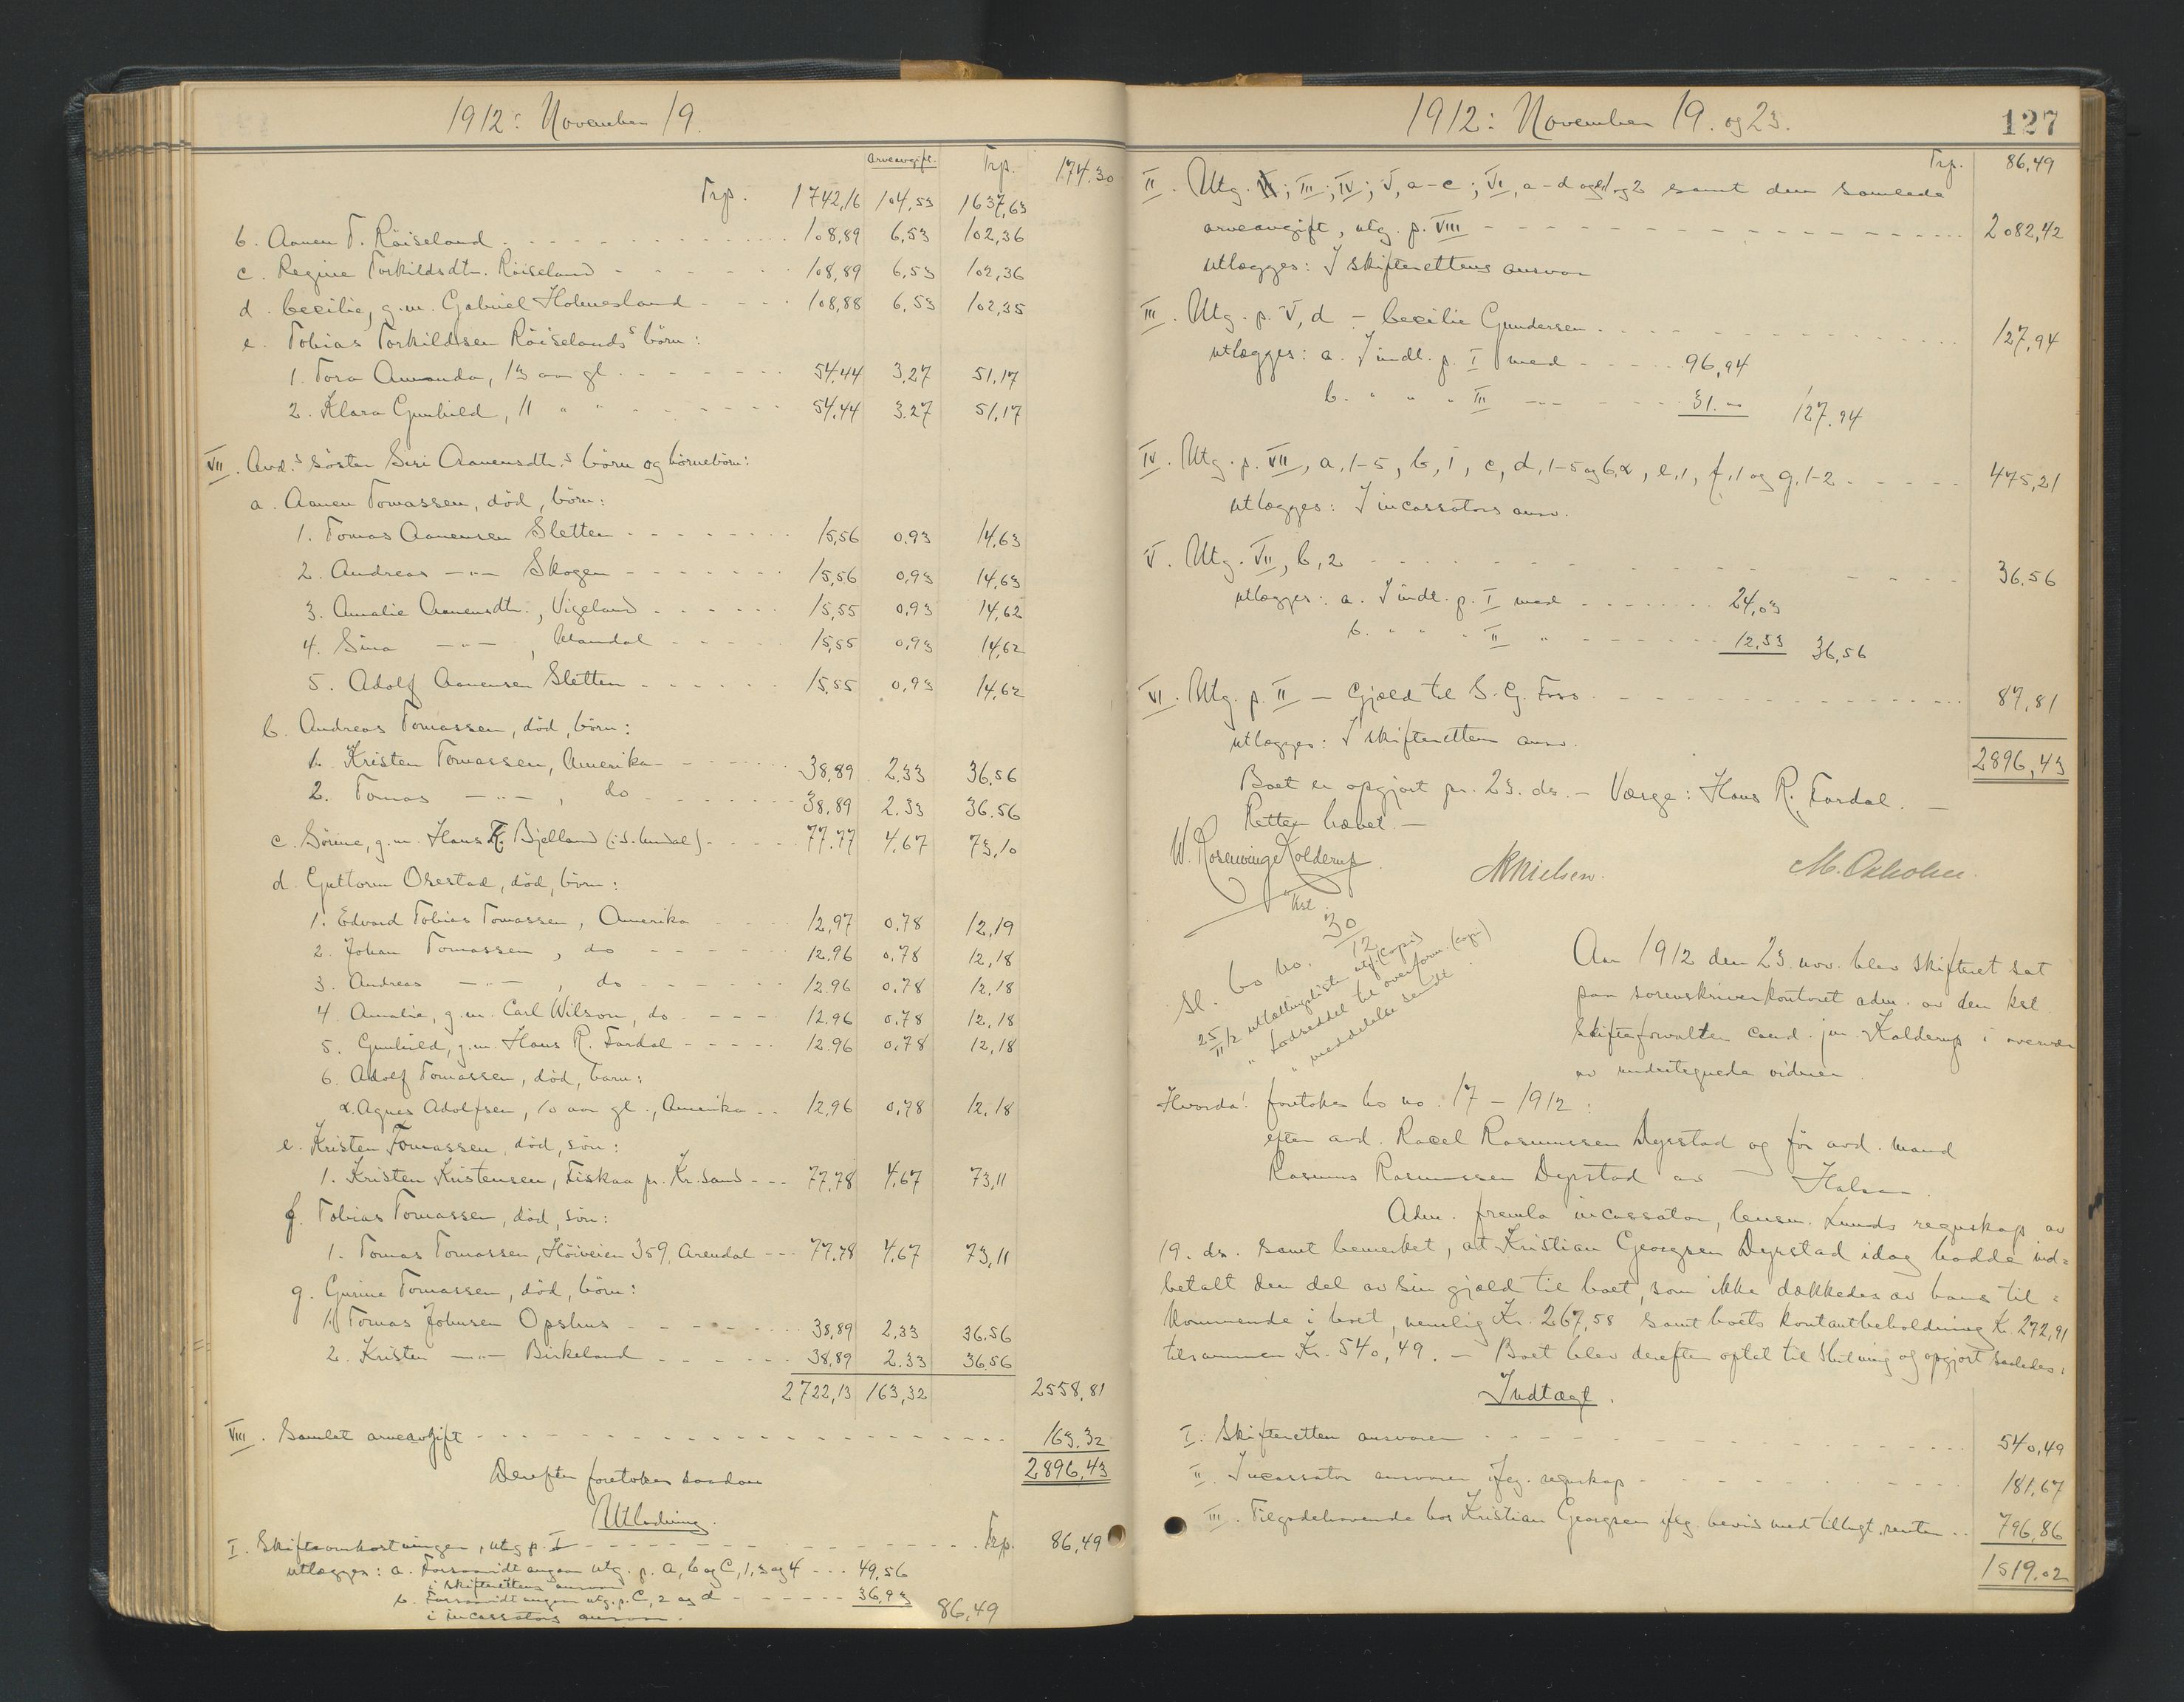 1912: November 19.
arveavgift. Trp. 174.30
Trp. 1742,16 104,53 1637,63
b. Aanen T. Röiseland 108,89 6,53 102,36
c. Regine Torkildsdtr. Röiseland 108,89 6,53 102,36
d. Cecilie, g.m. Gabriel Holmesland 108,88 6,53 102,35
e. Tobias Torkildsen Röiselands börn:
1. Tora Amanda, 13 aar gl. 54,44 3,27 51,17
2. Klara Gunhild, 11 " " 54,44 3.27 51,17
VII. Avd.s söster Siri Aanensdtr.s börn og börnebörn:
a. Aanen Tomassen, död, börn:
1. Tomas Aanensen Sletten 15,56 0.93 14,63
2. Andreas —"— Skogen 15,56 0,93 14,63
3. Amalie Aanensdtr., Vigeland 15,55 0,93 14,62
4. Sina —"—, Mandal 15,55 0,93 14,62
5. Adolf Aanensen Sletten 15,55 0,93 14,62
b. Andreas Tomassen, död, börn:
1. Kristen Tomassen, Amerika 38,89 2.33 36.56
2. Tomas —"—, do 38,89 2.33 36.56
c. Sörine, g.m. Hans K. Bjelland (i S. Undal) 77.77 4,67 73,10
d. Guttorm Orestad, död, börn:
1. Edvard Tobias Tomassen, Amerika 12,97 0.78 12,19
2. Johan Tomassen, do 12.96 0,78 12,18
3. Andreas —"—, do 12.96 0,78 12.18
4. Amalie, g.m. Carl Wilson, do 12.96 0,78 12,18
5. Gunhild, g.m. Hans R. Fardal 12.96 0,78 12,18
6. Adolf Tomassen, död, barn:
α. Agnes Adolfsen, 10 aar gl., Amerika 12,96 0,78 12.18
e. Kristen Tomassen, död, sön:
1. Kristen Kristensen, Fiskaa pr. Kr.sand 77,78 4,67 73,11
f. Tobias Tomassen, död, sön:
1. Tomas Tomassen, Höiveien 359, Arendal 77.78 4,67 73,11
g. Gurine Tomassen, död, börn:
1. Tomas Johnsen Opshus 38,89 2,33 36.56
2. Kristen —"— Birkeland 38,89 2.33 36,56
2722,13 163,32 2558,81
VIII. Samlet arveavgift 163.32
2896,43
Derefter foretokes saadan
Utlodning.
I. Skifteomkostninger, utg. p. I Trp. 86,49
utlægges: a. Forsaavidt angaar utg. p. a, b og c, 1, 3 og 4 49,56
i skifterettens ansvar
b. Forsaavidt angaar utg. p. C, 2 og d 36,93
i incassators ansvar. 86,49
1912: November 19. og 23.
127
Trp. 86,49
II. Utg. ; III; IV; V, a-c; VI, a-d og e 1 og 2 samt den samlede
arveavgift, utg. p. VIII 2082,42
utlægges: I skifterettens ansvar
III. Utg. p. V, d - Cecilie Gundersen 127,94
utlægges: a. I indt. p. I med 96,94
b. " " " III 31.- 127.94
IV. Utg. p. VII, a, 1-5, b, 1, c, d, 1-5 og 6, α, e, 1, f, 1 og g, 1-2 475,21
utlægges: I incassators ansv.
V. Utg. VII, b, 2 36.56
utlægges: a. I indt. p. I med 24,03
b. " " " II " 12,53 36,56
VI. Utg. p. II - Gjæld til S. G. Foss 87,81
utlægges: I skifteretten ansv.
2896,43
Boet er opgjort pr. 23. ds. - Værge: Hans R. Fardal. -
Retten hævet. -
W. Rosenvinge Kolderup
kst.
Nielsen.
M. Oxholm.
30
12
Sl. bo no.
25/11 12 utlodningsliste utf. (copi)
" Lodseddel til overform. (copi)
" meddelelse sendt
Aar 1912 den 23. nov. blev skifteret sat
paa sorenskriverkontoret adm. av den kst.
skifteforvalter cand. jur. Kolderup i overvær
av undertegnede vidner
Hvorda! foretokes bo no. 17 - 1912:
efter avd. Racel Rasmussen Dyrstad og før avd. mand
Rasmus Rasmussen Dyrstad av Halsaa.
Adm. fremla incassator, lensm. Lunds regnskap av
19. ds. samt bemerket, at Kristian Georgsen Dyrstad idag hadde ind=
betalt den del av sin gjæld til boet, som ikke dækkedes av hans til=
kommende i boet, nemlig Kr. 267,58 samt boets kontantbeholdning Kr. 272,91
tilsammen Kr. 540,49. - Boet blev derefter optat til slutning og opgjort saaledes:
Indtægt.
I. Skifteretten ansvarer 540,49
II. Incassator ansvarer iflg. regnskap 181,67
III. Tilgodehavende hos Kristian Georgsen iflg. bevis med tillagt renter 796,86
1519.02